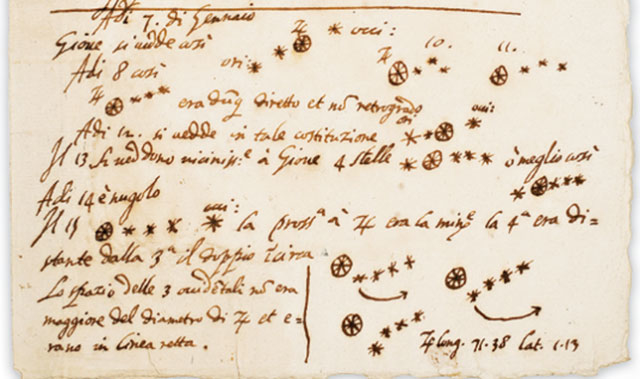 Adi 7. di Gennaio
Gione si vedde così ori: ♃ occi:
Adi 8 così ♃ 10. 11.
♃ era dūq diretto et nõ retrogrado
Adi 12. si vedde in tale costitutione ori occi:
Il 13 si veddono viciniss.e à Gione 4 stelle ò meglio così
Adi 14 è nugolo
Il 15 occi: la prossa à ♃ era la mine la 4a era di=
stante dalla 3a il doppio īcirca
Lo spatio delle 3 occidētali nõ era
maggiore del diametro di ♃ et e=
rano in linea retta.
♃ long. 71.38 lat. 1.13